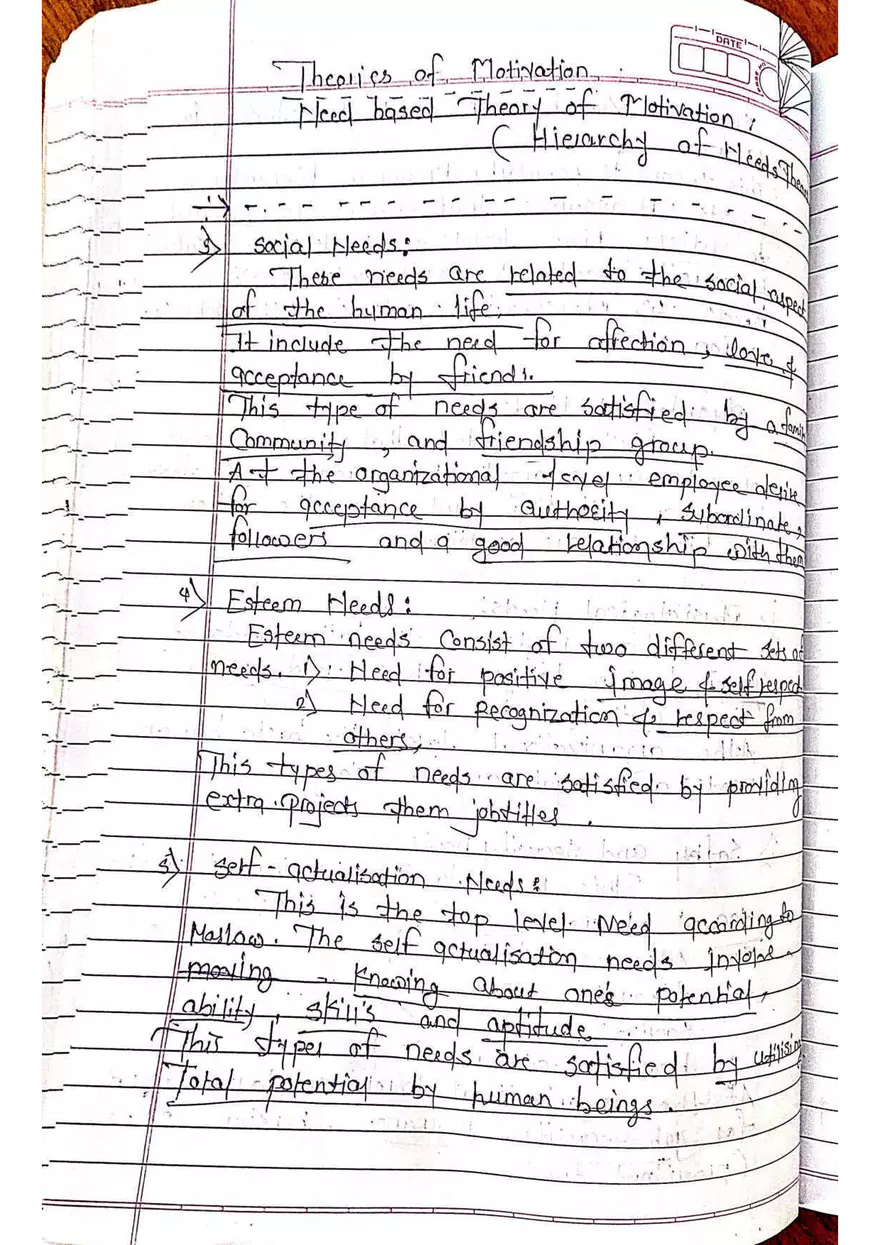 DATE
Theories of Motivation
Need based Theory of Motivation:
( Hierarchy of Needs Theory
3) Social Needs:
These needs are related to the social aspect
of the human life.
It include the need for affection, love &
acceptance by friends.
This type of needs are satisfied by a family
Community, and friendship group.
At the organizational level employee desire
for acceptance by authority, subordinate,
followers and a good relationship with them
4) Esteem Needs:
Esteem needs consist of two different sets of
needs. 1) Need for positive image & self respect
2) Need for Recognization & respect from
others,
This types of needs are satisfied by providing
extra projects them jobtitles.
5) Self-actualisation Needs:
This is the top level Need according to
Maslow. The self actualisation needs involve
Knowing about one's potential,
ability, skill's and aptitude.
This types of needs are satisfied by utilising
Total potential by human beings.